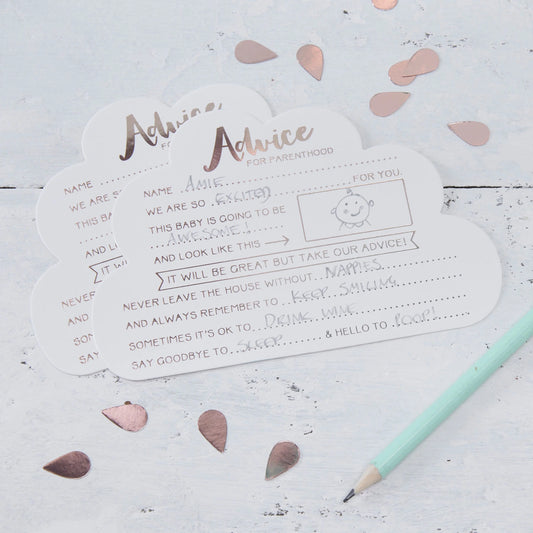 Advice
FOR PARENTHOOD
NAME AMIE
WE ARE SO EXCITED FOR YOU.
THIS BABY IS GOING TO BE
AWESOME!
AND LOOK LIKE THIS →
IT WILL BE GREAT BUT TAKE OUR ADVICE!
NEVER LEAVE THE HOUSE WITHOUT NAPPIES
AND ALWAYS REMEMBER TO KEEP SMILING
SOMETIMES IT'S OK TO DRINK WINE
SAY GOODBYE TO SLEEP & HELLO TO POOP!
Advice
FOR
NAME
WE ARE SO
THIS BABY
AND LOOK
NEVER
AND
SOMETIMES
SAY